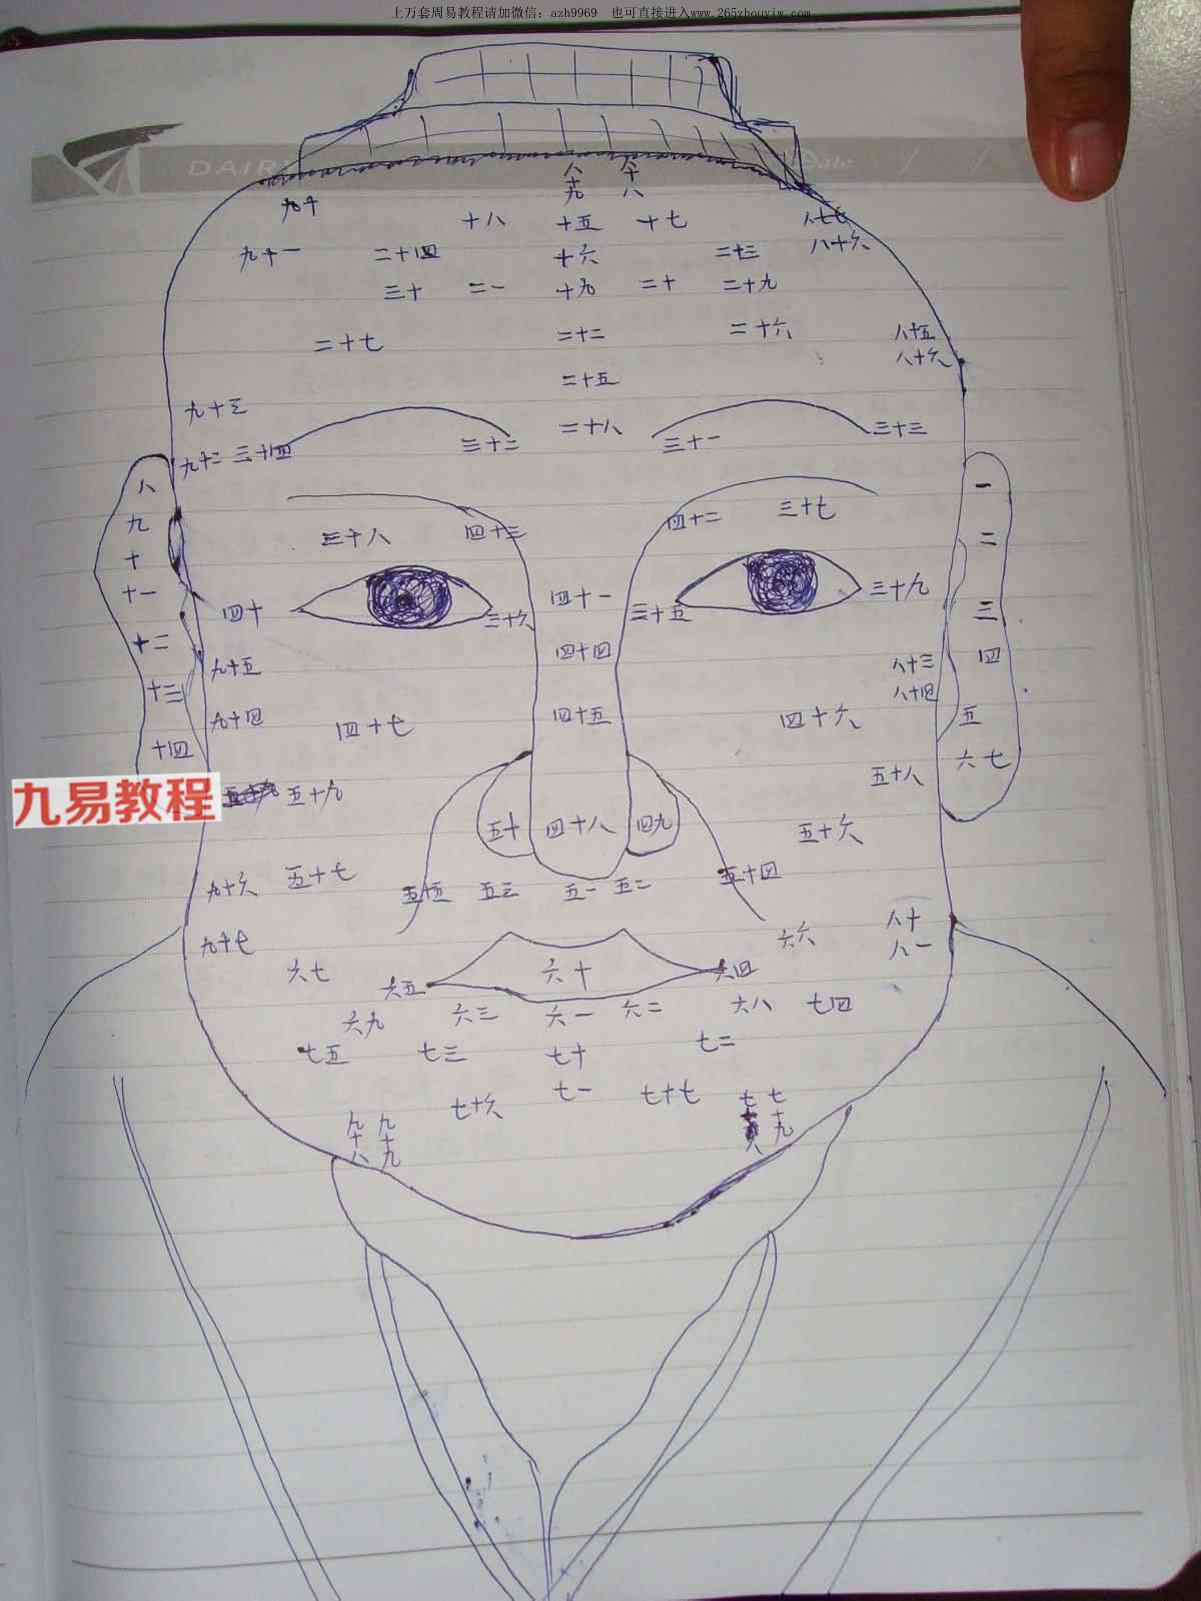 上万套周易教程请加微信：azh9969 也可直接进入www.265zhouyiw.com
DAIR
Date:
八十九 八十八
九十 十八 十五 十七
九十一 二十四 十六 二十三 八十六
三十 二一 十九 二十 二十九
二十七 二十二 二十六 八十五
二十五 八十六
九十三 二十八
九十二 三十四 三十二 三十一 三十三
八 一
九 三十八 四十三 四十二 三十七 二
十
十一 四十 三十六 四十一 三十五 三十九 三
十二 九十五 四十四 八十三 四
十三 九十四 四十七 四十五 四十六 八十四 五
十四 五十八 六 七
九易教程 五十九
五十 四十八 四九 五十六
九十六 五十七 五十五 五三 五一 五二 五十四
九十七 六六 八十
六七 六五 六十 六四 八一
六九 六三 六一 六二 六八 七四
七五 七三 七十 七二
七十六 七一 七十七
九十八 九十九 七十九